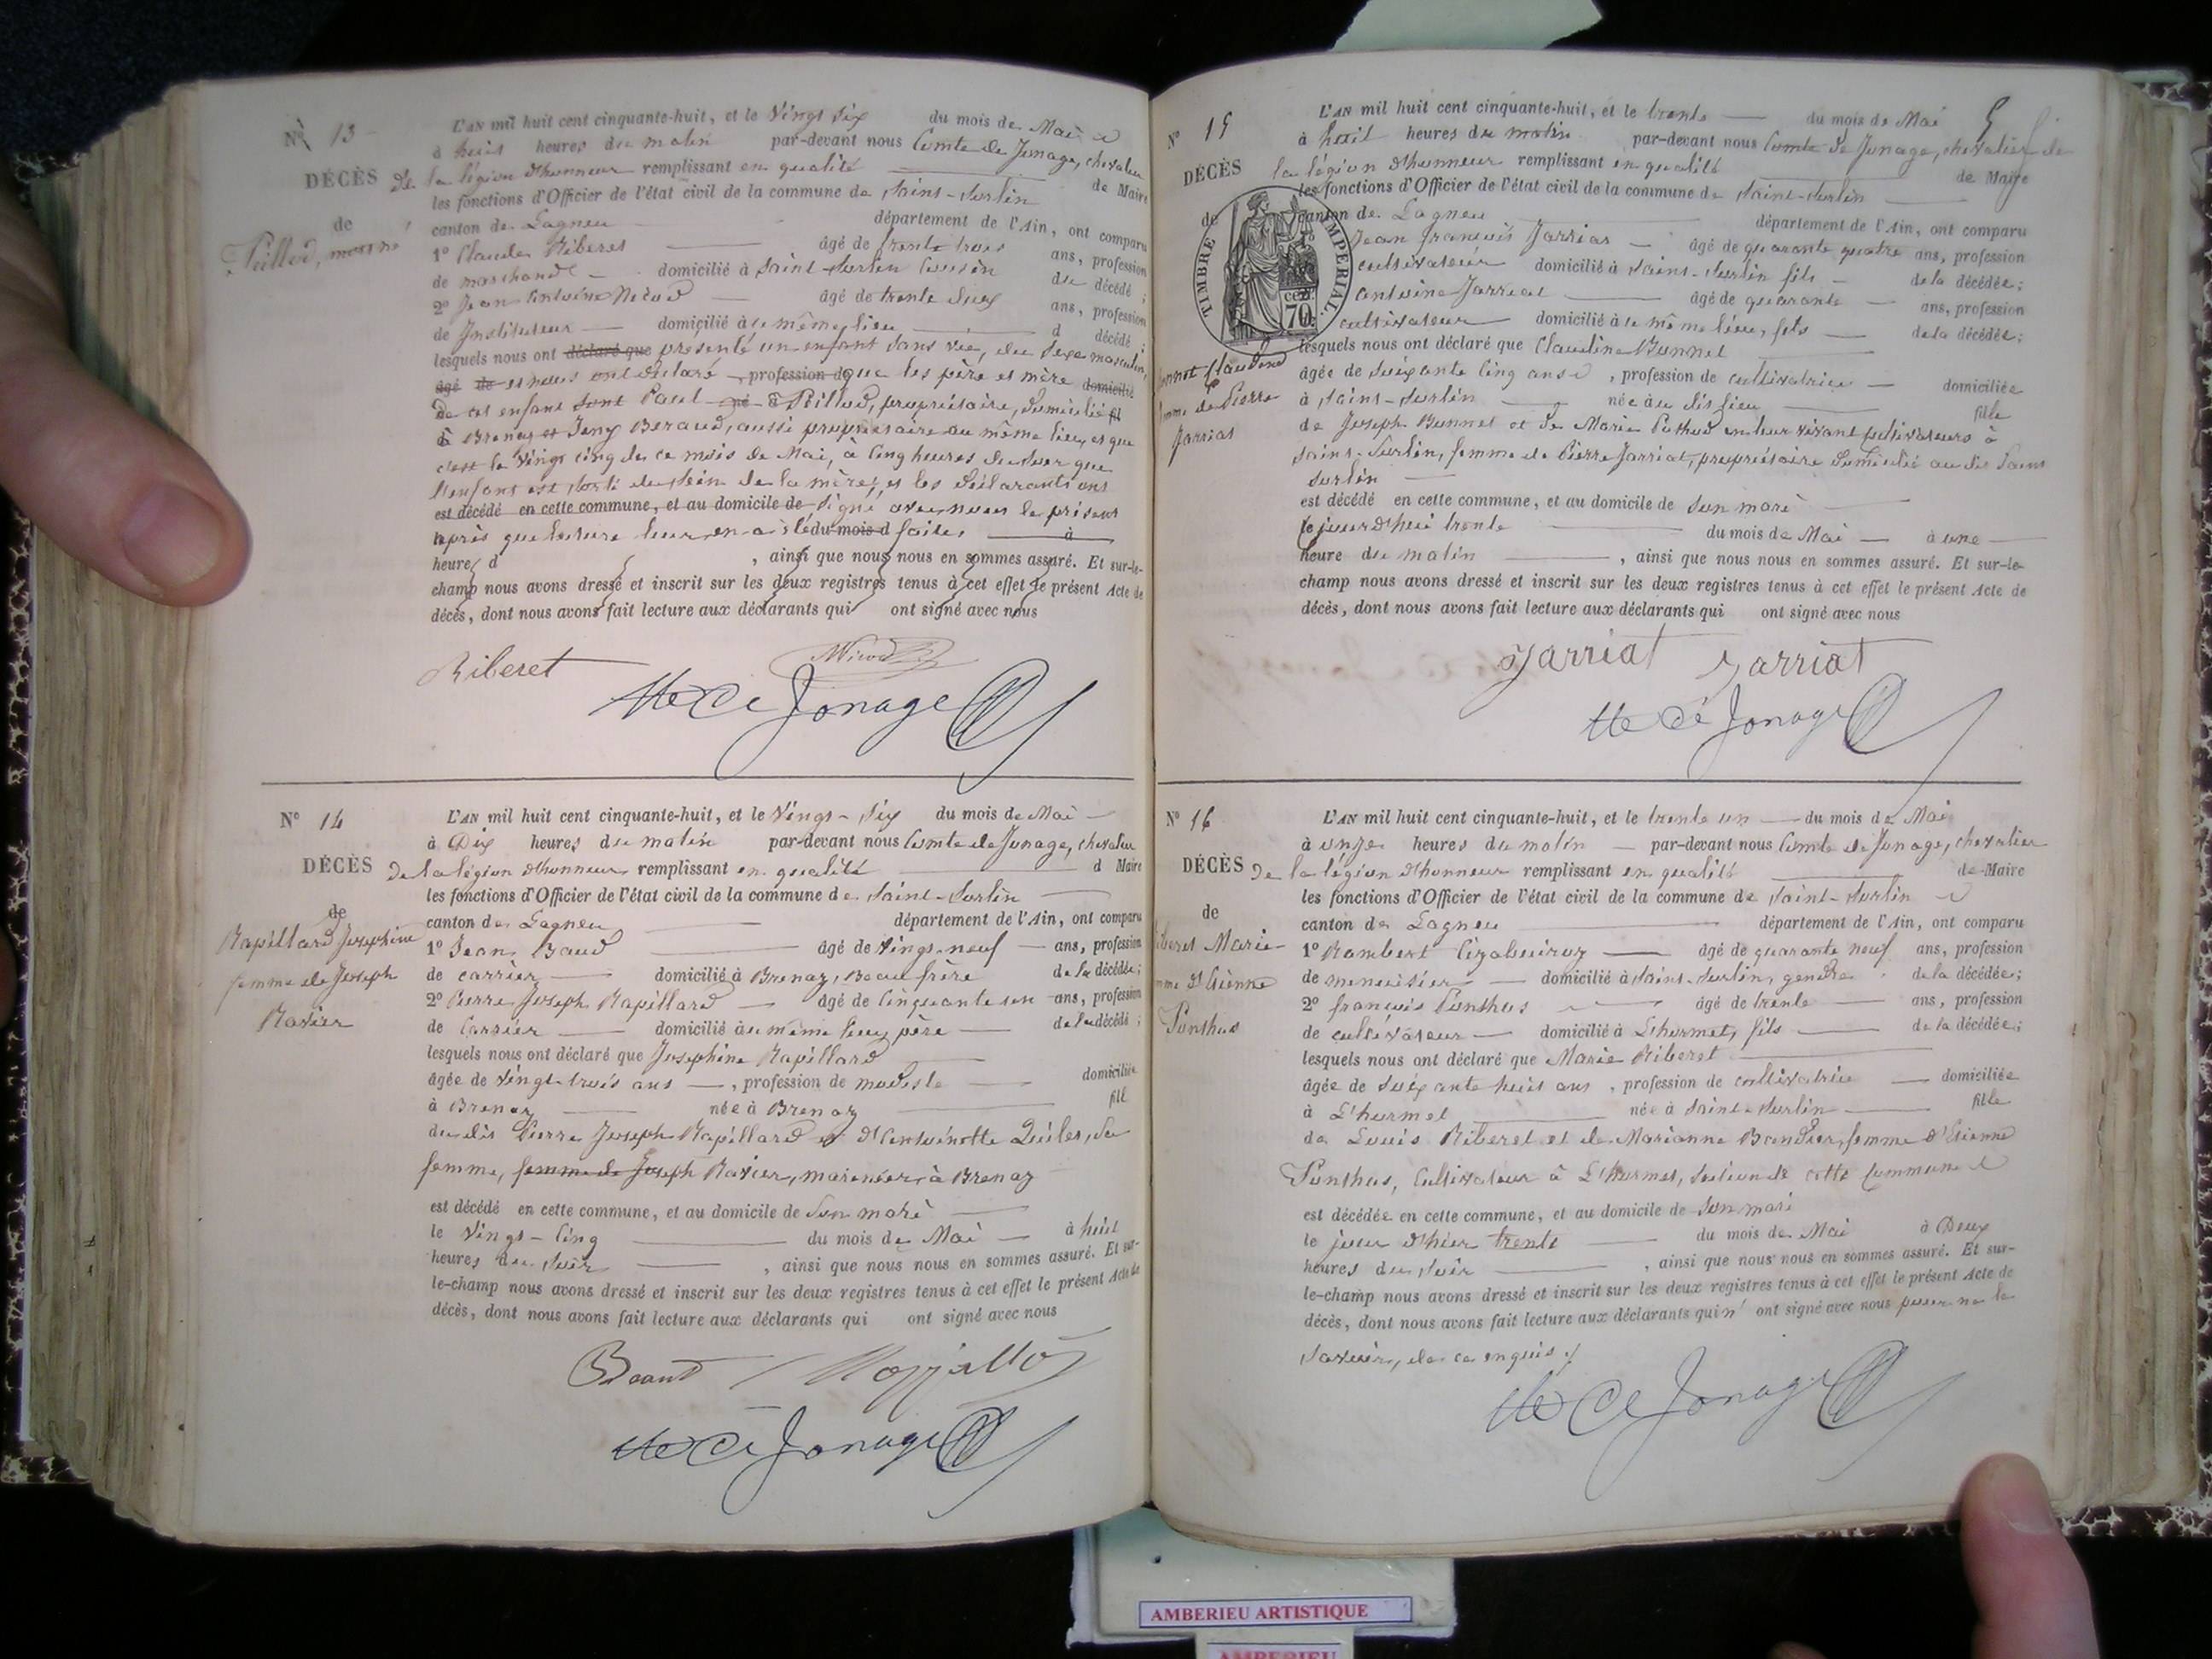 N° 13
DÉCÈS
de
Poillod, mort né
L'AN mil huit cent cinquante-huit, et le Vingt six du mois de Mai
à huit heures du matin par-devant nous Comte de Jonage, chevalier
de la légion d'honneur remplissant en qualité de Maire
les fonctions d'Officier de l'état civil de la commune de Saint-Sorlin
canton de Lagneu département de l'Ain, ont comparu
1° Claude Riberet âgé de trente trois ans, profession
de marchand domicilié à Saint-Sorlin Cousin du décédé;
2° Jean Antoine Nicod âgé de trente deux ans, profession
de Instituteur domicilié à le même lieu d décédé;
lesquels nous ont déclaré que présenté un enfant sans vie, du sexe masculin,
âgé de et nous ont déclaré profession de que les père et mère domicilié
de cet enfant sont Paul né à Poillod, propriétaire, domicilié fil
à Brenaz et Jeny Beraud, aussi propriétaire au même lieu, et que
c'est le vingt cinq de ce mois de Mai, à Cinq heures du soir que
l'enfant est sorti du sein de la mère, et les déclarants ont
est décédé en cette commune, et au domicile de signé avec nous le présent
après que lecture leur en a été du mois d faite, à
heure d , ainsi que nous nous en sommes assuré. Et sur-le-
champ nous avons dressé et inscrit sur les deux registres tenus à cet effet le présent Acte de
décès, dont nous avons fait lecture aux déclarants qui ont signé avec nous
Riberet Nicod
de Jonage
N° 14
DÉCÈS
de
Rapillard Josephine
femme de Joseph
Ravier
L'AN mil huit cent cinquante-huit, et le Vingt-six du mois de Mai
à Dix heures du matin par-devant nous Comte de Jonage, chevalier
de la légion d'honneur remplissant en qualité d Maire
les fonctions d'Officier de l'état civil de la commune de Saint-Sorlin
canton de Lagneu département de l'Ain, ont comparu
1° Jean Baud âgé de vingt-neuf ans, profession
de carrier domicilié à Brenaz, Beau frère de la décédée;
2° Pierre Joseph Rapillard âgé de Cinquante un ans, profession
de Carrier domicilié au même lieu, père de la décédé;
lesquels nous ont déclaré que Josephine Rapillard
âgée de vingt-trois ans, profession de modiste domiciliée
à Brenaz née à Brenaz fill
du dit Pierre Joseph Rapillard et d'Antoinette Quiles, sa
femme, femme de Joseph Ravier, marinier, à Brenaz
est décédé en cette commune, et au domicile de son mari
le Vingt-Cinq du mois de Mai à huit
heures du soir , ainsi que nous nous en sommes assuré. Et sur-
le-champ nous avons dressé et inscrit sur les deux registres tenus à cet effet le présent Acte de
décès, dont nous avons fait lecture aux déclarants qui ont signé avec nous
de Jonage
N° 15
5
DÉCÈS
de
TIMBRE IMPERIAL.
cen. 70
Claudine
femme de Pierre
Jarriat
L'AN mil huit cent cinquante-huit, et le trente du mois de Mai
à huit heures du matin par-devant nous Comte de Jonage, chevalier de
la légion d'honneur remplissant en qualité de Maire
les fonctions d'Officier de l'état civil de la commune de Saint-Sorlin
canton de Lagneu département de l'Ain, ont comparu
Jean françois Jarriat âgé de quarante quatre ans, profession
cultivateur domicilié à Saint-Sorlin fils de la décédée;
Antoine Jarriat âgé de quarante ans, profession
cultivateur domicilié à le même lieu, fils de la décédée;
lesquels nous ont déclaré que Claudine Bonnet
âgée de soixante cinq ans, profession de cultivatrice domiciliée
à Saint-Sorlin née au dit lieu fille
de Joseph Bonnet et de Marie Pothod en leur vivant cultivateurs à
Saint-Sorlin, femme de Pierre Jarriat, propriétaire domicilié au dit Saint
Sorlin
est décédé en cette commune, et au domicile de son mari
le jourd'hui trente du mois de Mai à une
heure du matin , ainsi que nous nous en sommes assuré. Et sur-le-
champ nous avons dressé et inscrit sur les deux registres tenus à cet effet le présent Acte de
décès, dont nous avons fait lecture aux déclarants qui ont signé avec nous
Jarriat Jarriat
de Jonage
N° 16
DÉCÈS
de
Riberet Marie
femme d'Etienne
Ponthus
L'AN mil huit cent cinquante-huit, et le trente un du mois de Mai
à onze heures du matin par-devant nous Comte de Jonage, chevalier
de la légion d'honneur remplissant en qualité de Maire
les fonctions d'Officier de l'état civil de la commune de Saint-Sorlin
canton de Lagneu département de l'Ain, ont comparu
1° Rambert âgé de quarante neuf ans, profession
de menuisier domicilié à Saint-Sorlin, gendre de la décédée;
2° françois Ponthus âgé de trente ans, profession
de cultivateur domicilié à L'hormet, fils de la décédée;
lesquels nous ont déclaré que Marie Riberet
âgée de soixante huit ans, profession de cultivatrice domiciliée
à L'hormet née à Saint-Sorlin fille
de Louis Riberet et de Marianne Bandier, femme d'Etienne
Ponthus, Cultivateur à L'hormet, section de cette Commune
est décédée en cette commune, et au domicile de son mari
le jour d'hier trente du mois de Mai à Deux
heures du soir , ainsi que nous nous en sommes assuré. Et sur-
le-champ nous avons dressé et inscrit sur les deux registres tenus à cet effet le présent Acte de
décès, dont nous avons fait lecture aux déclarants qui n'ont signé avec nous pour ne le
savoir, de ce enquis
de Jonage
AMBERIEU ARTISTIQUE
AMBERIEU